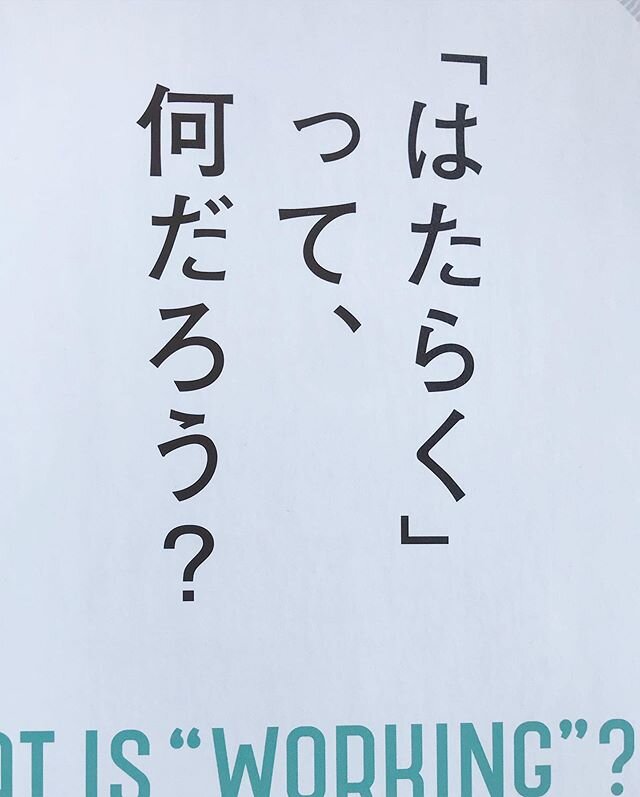 「はたらく」
って、
何だろう？
IS “WORKING”?